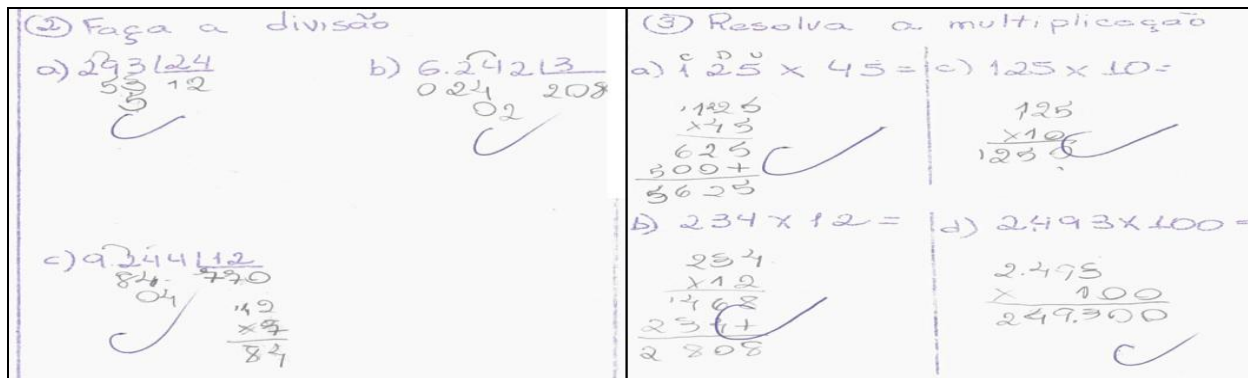 ② Faça a divisão
a) 293 | 24
53 12
5
b) 6.242 | 3
024 208
02
c) 9.244 | 12
84 770
04
12
×7
84
③ Resolva a multiplicação
C D U
a) 125 × 45 =
125
×45
625
500+
5625
c) 125 × 10 =
125
×10
1250
b) 234 × 12 =
234
×12
468
234+
2808
d) 2.493 × 100 =
2.493
× 100
249.300